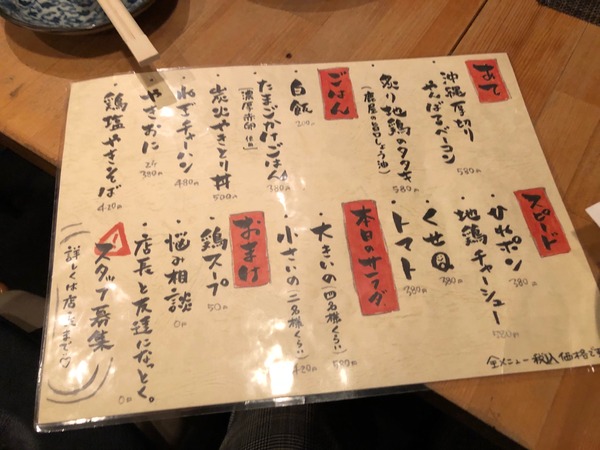 あて
沖縄厚切り
やんばるベーコン
580円
炙り地鶏のタタキ
(鹿屋の旨口じょうゆ)
580円
ごはん
白飯
200円
たまごかけごはん
(濃厚赤卵使用)
380円
炭火やきとり丼
500円
ねぎチャーハン
480円
やきおに
2ケ
380円
鶏塩やきそば
420円
スピード
ひねポン
380円
地鶏チャーシュー
580円
くせ
380円
トマト
380円
本日のサラダ
大きいの(四名様くらい)
580円
小さいの(二名様くらい)
420円
おまけ
鶏スープ
50円
悩み相談
0円
店長と友達になっとく。
0円
スタッフ募集
詳しくは店長まで♡
全メニュー税込価格です